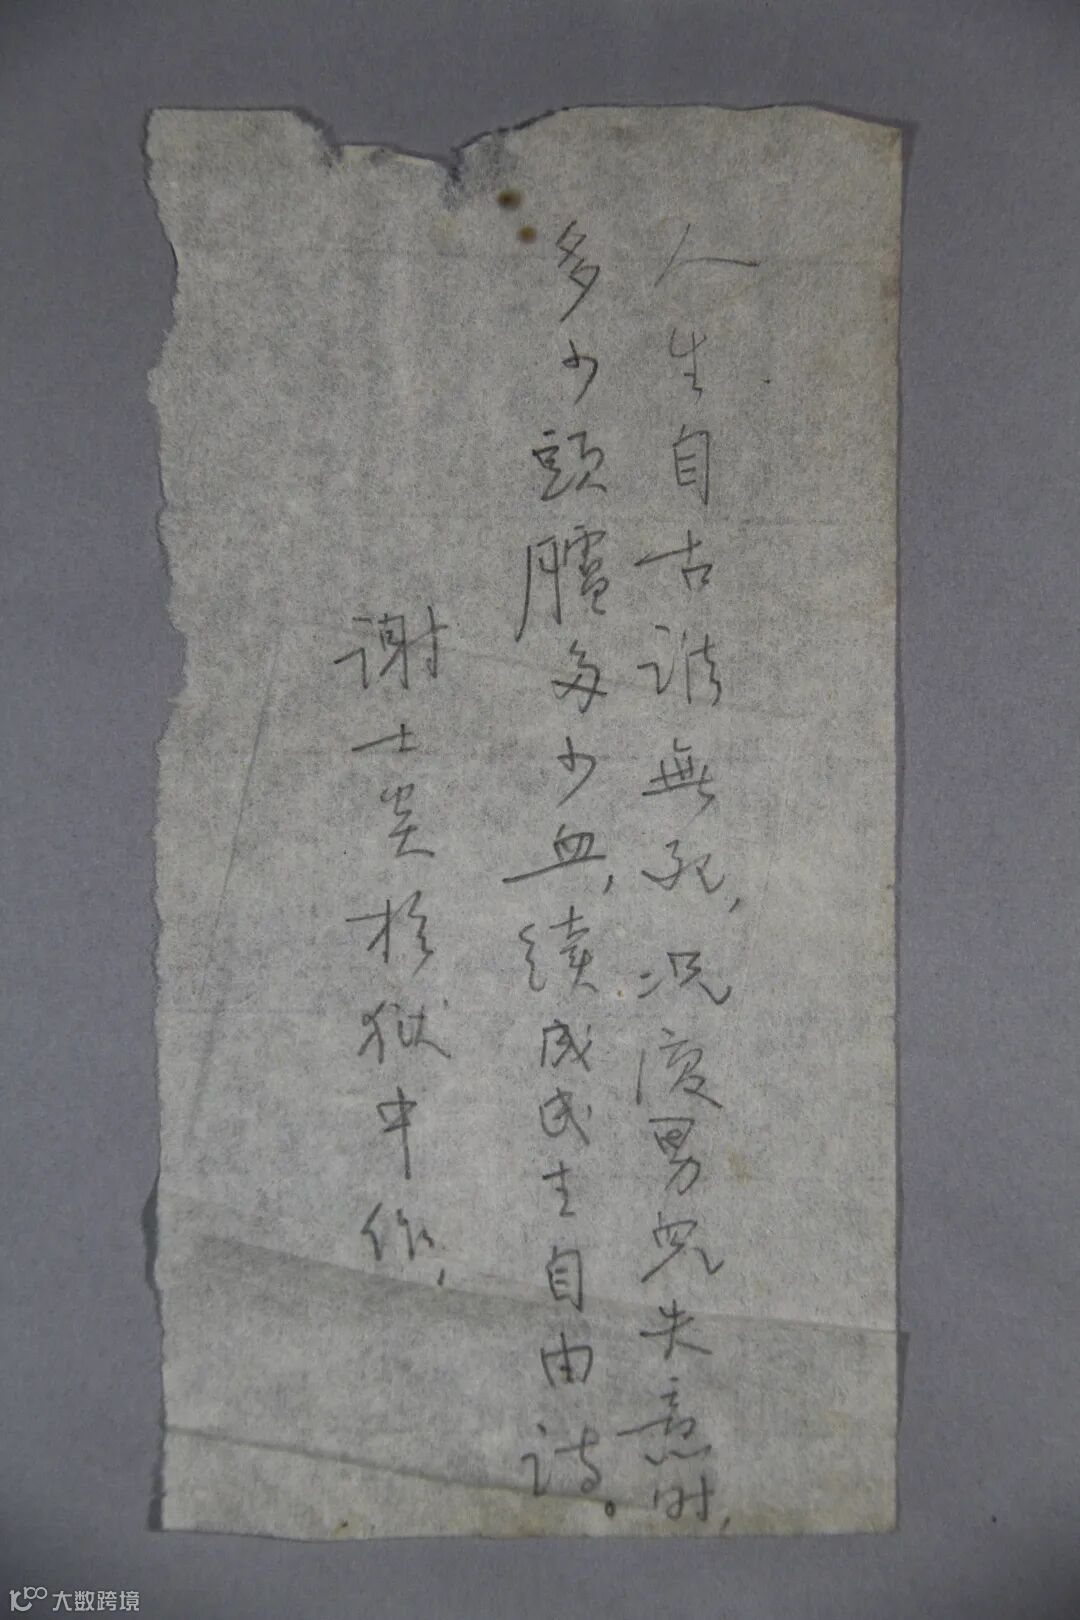 人生自古谁無死，况復男兒失意时，
多少頭臚多少血，續成民主自由诗。
谢士炎於狱中作，
大数跨境